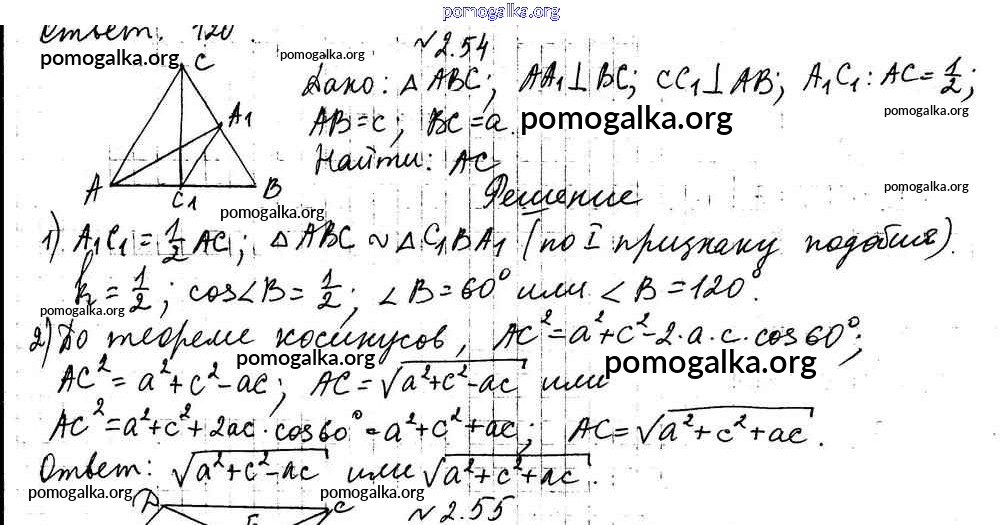 pomogalka.org
Ответ. 120.
№2.54
pomogalka.org
pomogalka.org
C
Дано: △ABC; AA₁⊥BC; CC₁⊥AB; A₁C₁:AC=1/2;
A₁
pomogalka.org
AB=c; BC=a.
pomogalka.org
Найти: AC
A C₁ B
Решение
pomogalka.org
pomogalka.org
1) A₁C₁=1/2 AC; △ABC ~ △C₁BA₁ (по I признаку подобия).
k=1/2; cos∠B=1/2; ∠B=60° или ∠B=120°.
pomogalka.org
2) По теореме косинусов, AC²=a²+c²-2·a·c·cos60°;
pomogalka.org
pomogalka.org
AC²=a²+c²-ac; AC=√(a²+c²-ac) или
AC²=a²+c²+2ac·cos60°=a²+c²+ac; AC=√(a²+c²+ac).
Ответ: √(a²+c²-ac) или √(a²+c²+ac).
pomogalka.org
pomogalka.org
pomogalka.org
C
№2.55